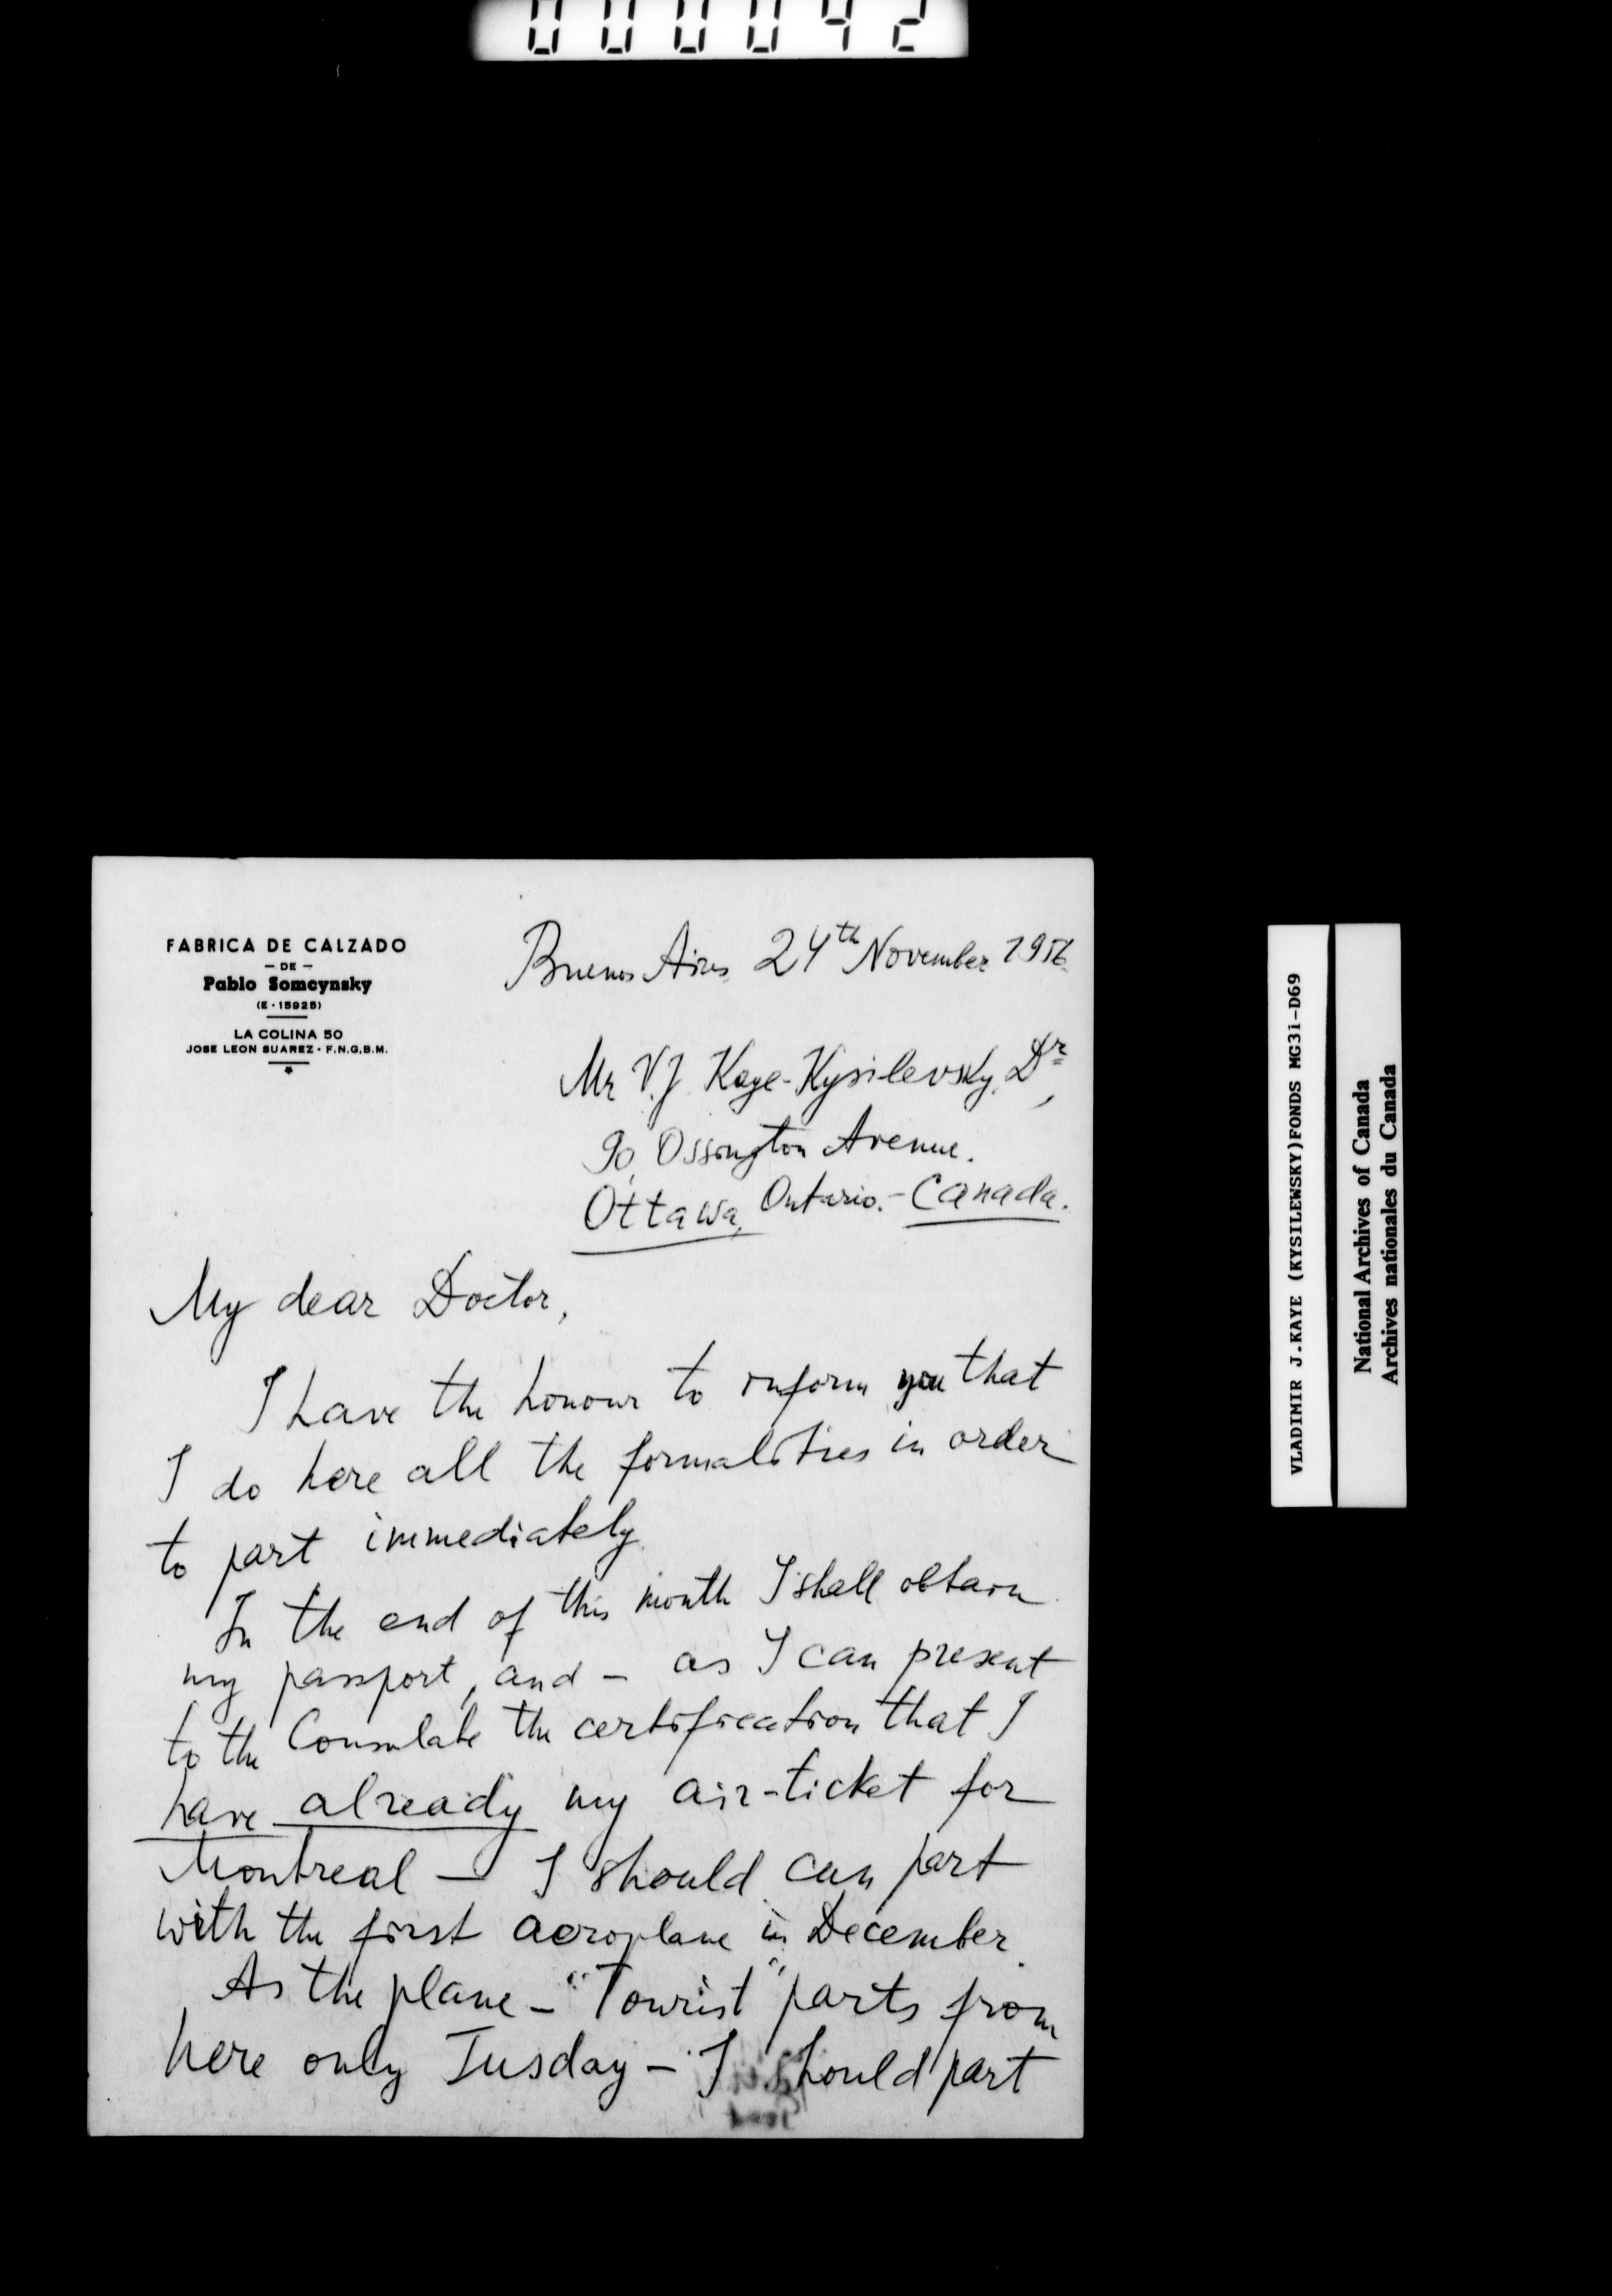 000042
FABRICA DE CALZADO
— DE —
Pablo Somcynsky
(E - 15925)
LA COLINA 50
JOSE LEON SUAREZ - F.N.G.B.M.
Buenos Aires 24th November 1956.
Mr V.J. Kaye-Kysilevsky, Dr,
90, Ossington Avenue.
Ottawa, Ontario. - Canada.
My dear Doctor,
I have the honour to inform you that
I do here all the formalities in order
to part immediately.
In the end of this month I shall obtain
my passport, and - as I can present
to the Consulate the certification that I
have already my air-ticket for
Montreal — I should can part
with the first aeroplane in December.
As the plane - "Tourist" parts from
here only Tusday - I should part
VLADIMIR J.KAYE (KYSILEWSKY)FONDS MG31-D69
National Archives of Canada
Archives nationales du Canada